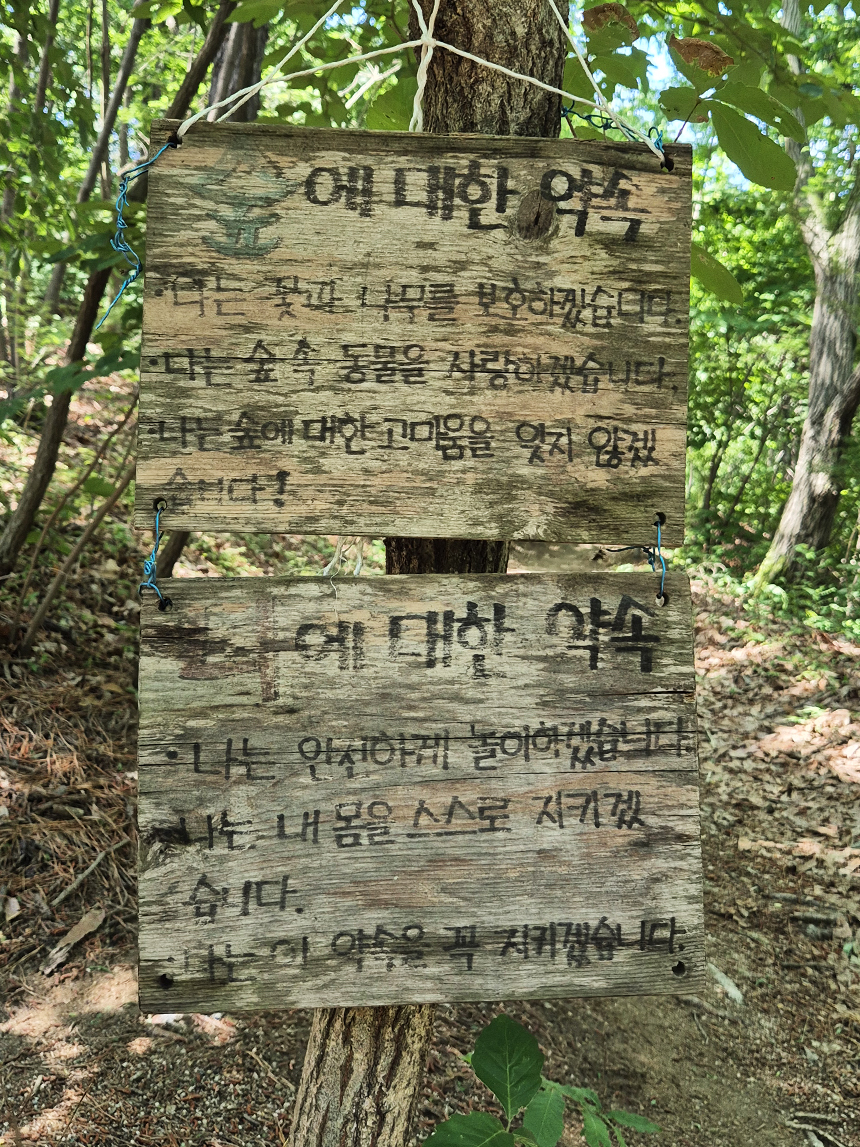 숲에 대한 약속
· 나는 꽃과 나무를 보호하겠습니다.
· 나는 숲속 동물을 사랑하겠습니다.
· 나는 숲에 대한 고마움을 잊지 않겠
습니다!
에 대한 약속
· 나는 안전하게 놀이하겠습니다.
나는 내 몸을 스스로 지키겠
습니다.
· 나는 이 약속을 꼭 지키겠습니다.